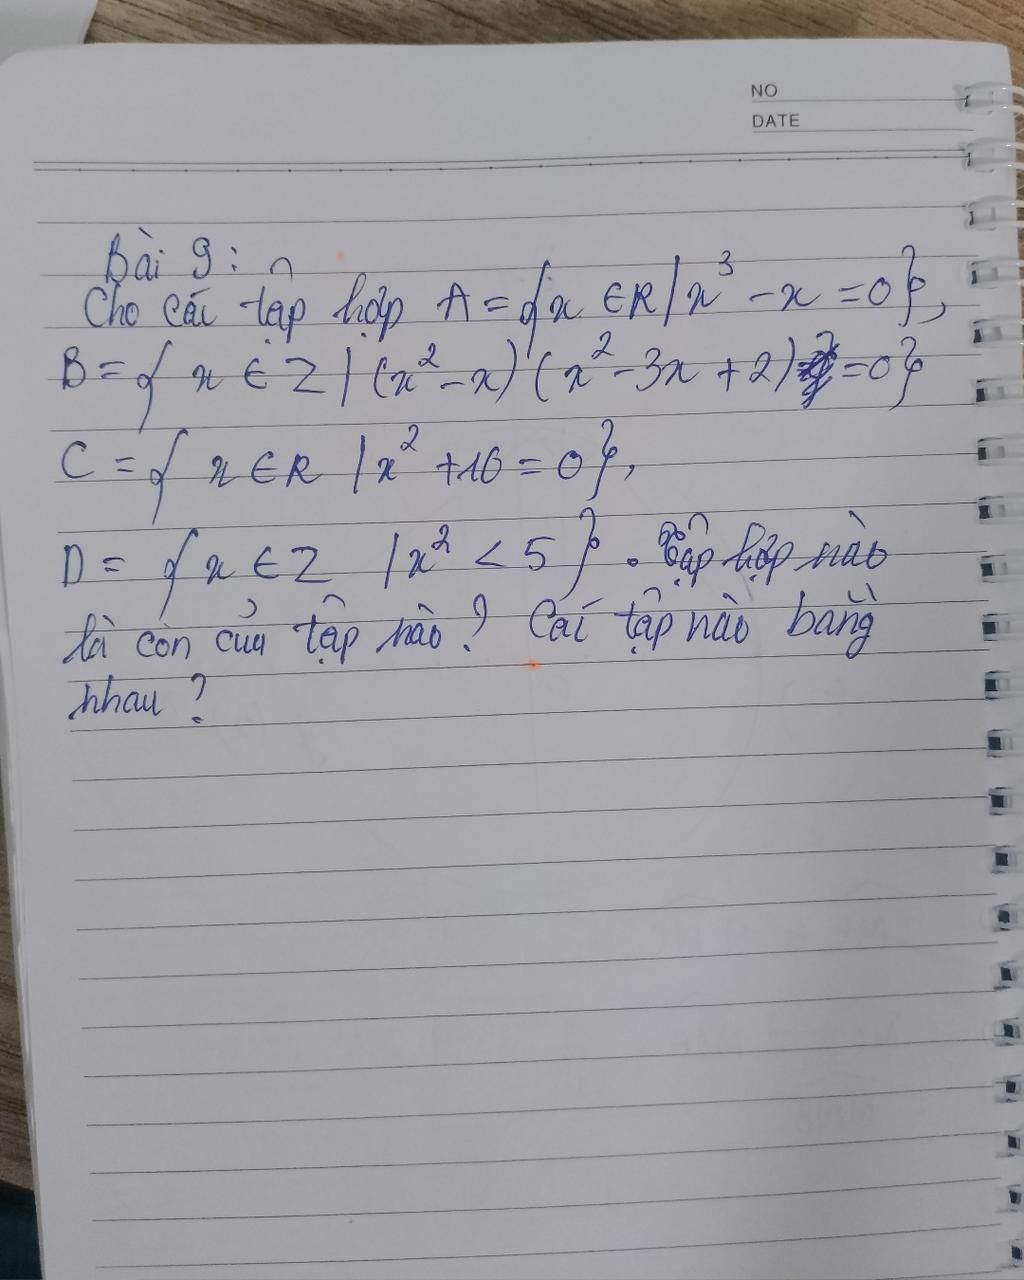 NO
DATE
Bài 9:
Cho các tập hợp A = {x ∈ R | x³ - x = 0},
B = { x ∈ Z | (x² - x) (x² - 3x + 2) = 0}
C = { x ∈ R | x² + 16 = 0},
D = { x ∈ Z | x² < 5 }. Tập hợp nào
là con của tập nào? Các tập nào bằng
nhau?